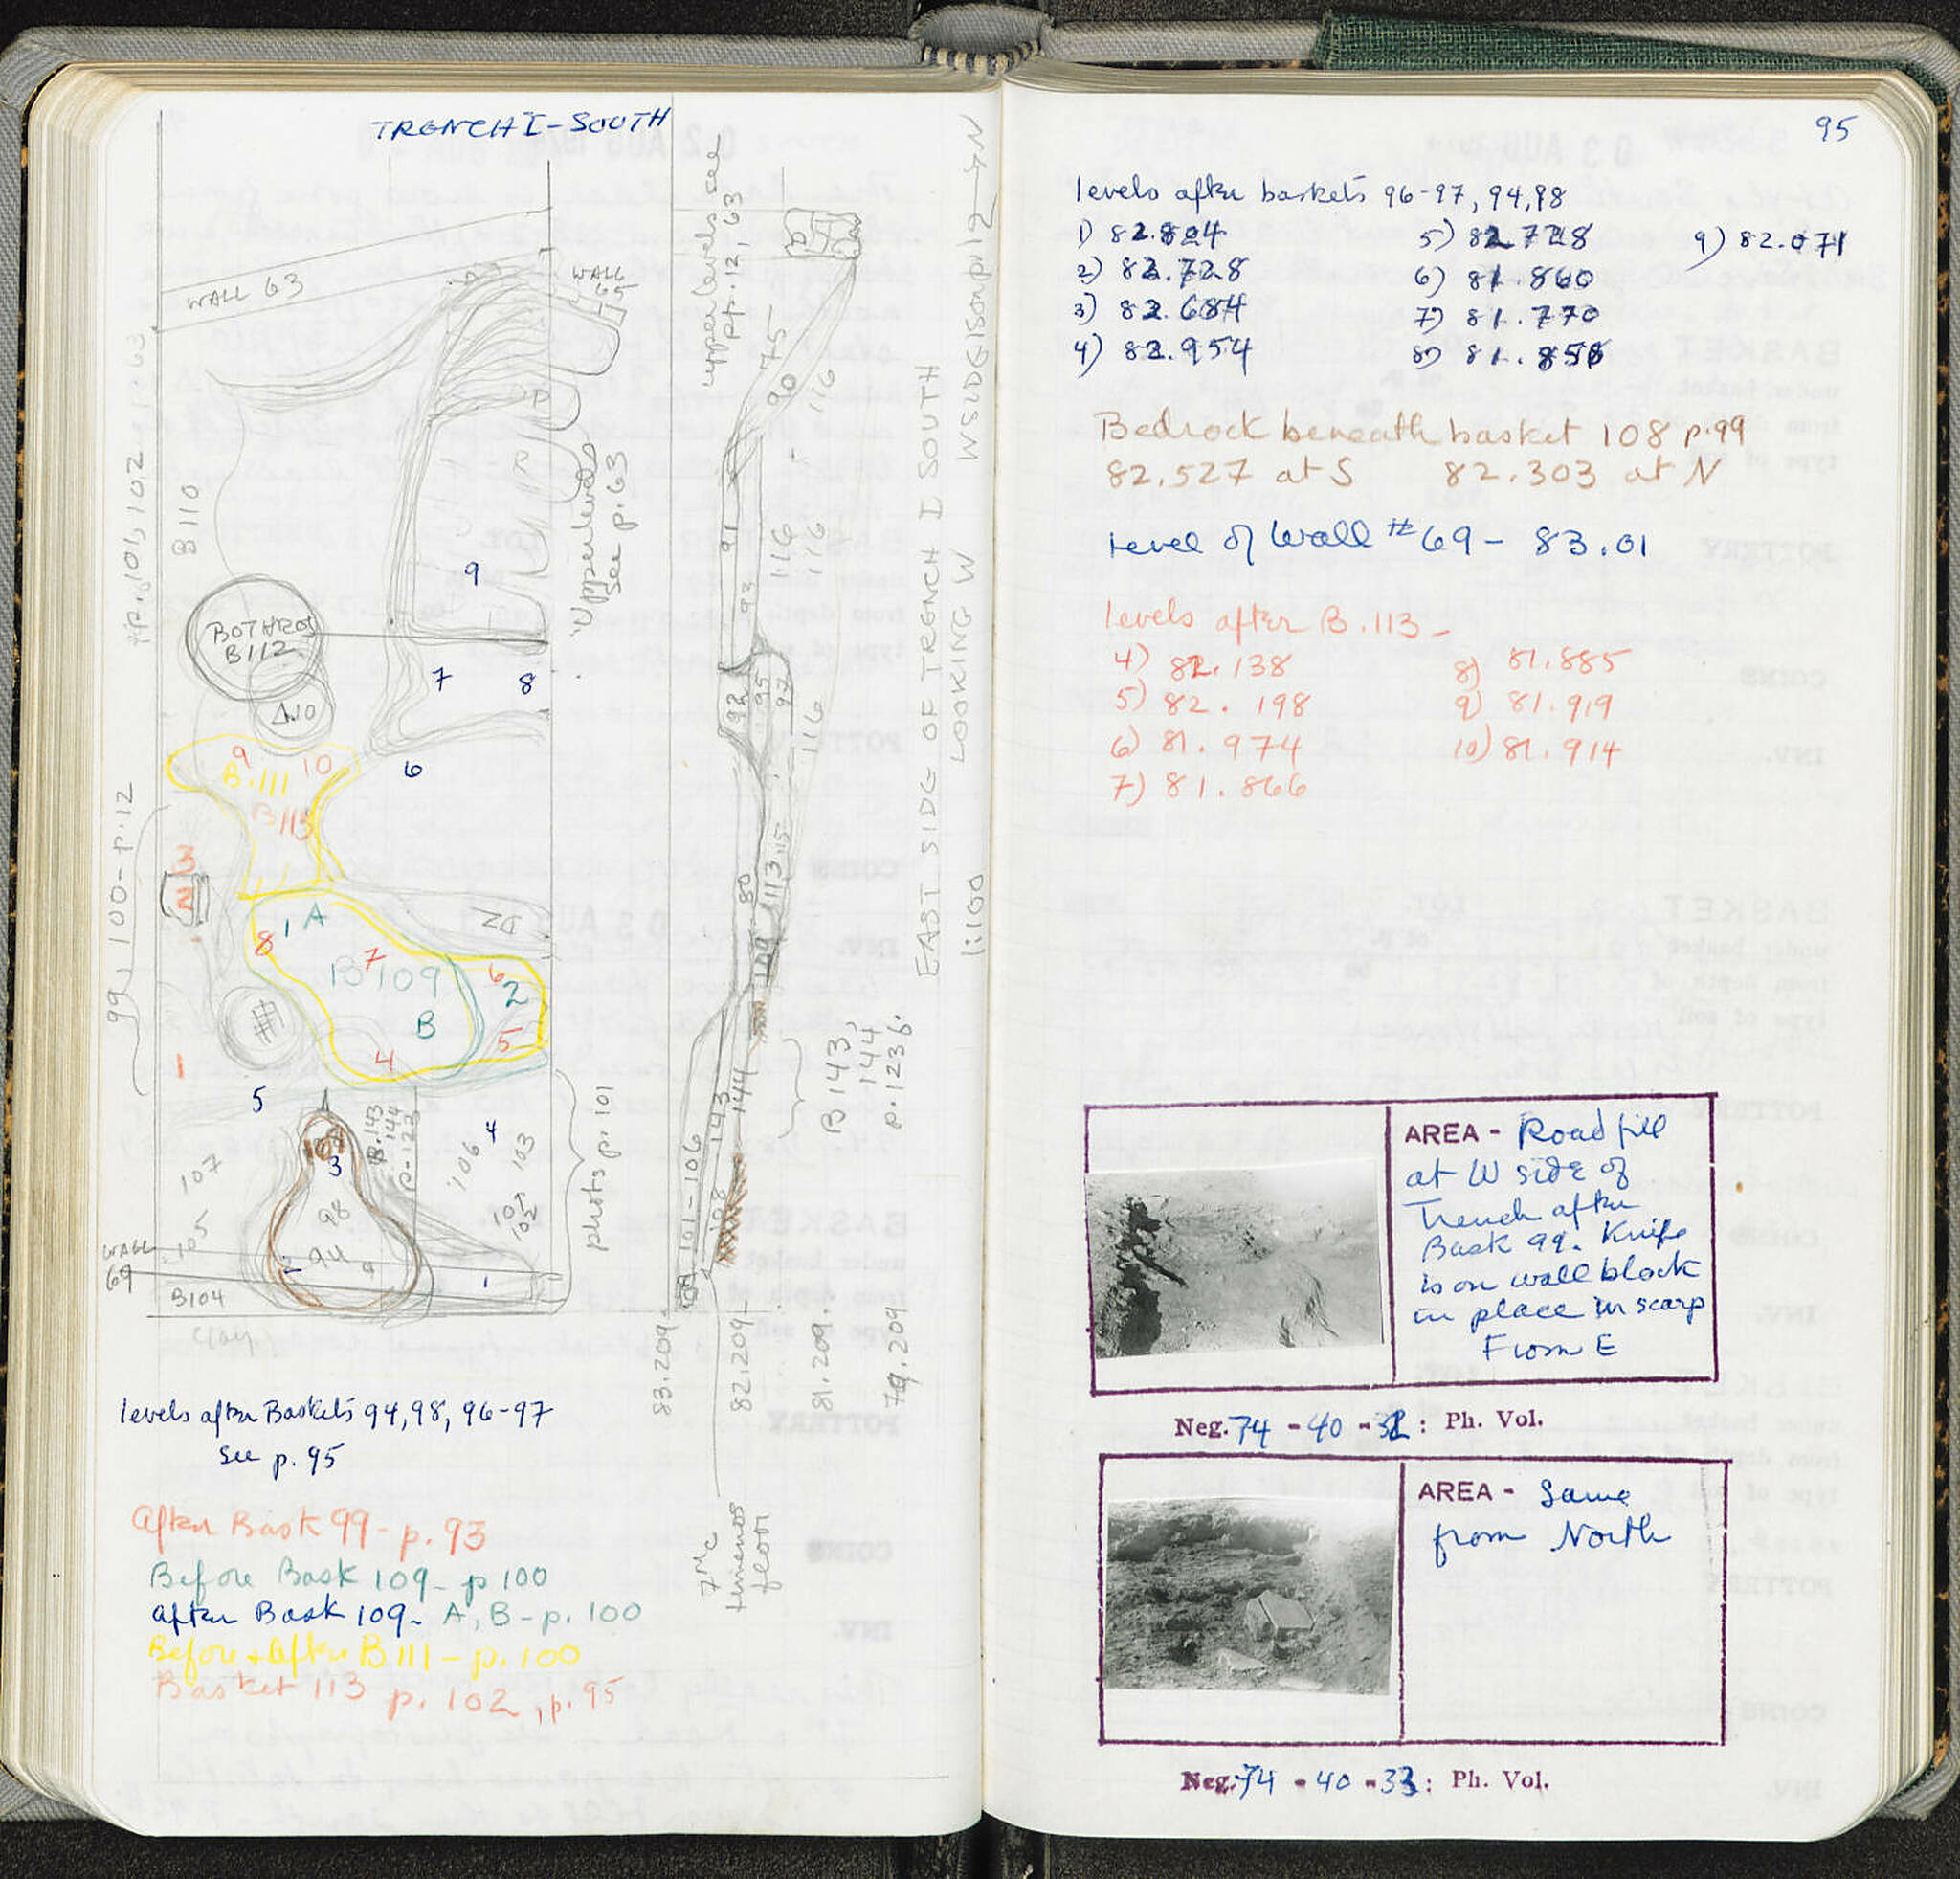 TRENCH I - SOUTH
WALL 63
WALL
65
upper levels see
pp. 12, 63
Upper levels
see p. 63
B110
pp. 101, 102
BOTHROS
B112
9
7
8
6
9
10
B.111
B113
99, 100 - p. 12
3
2
1
8
1 A
7
B109
6
2
B
5
4
#1
5
4
3
108
B.143
144
p. 123
106
103
107
105
98
94
101
102
2
1
WALL
69
B104
Clay
photos p. 101
75
90
116
91
116
116
93
92
95
97
116
80
115
113
109
144
143
101-106
108
B 143,
144
p. 123 b.
EAST SIDE OF TRENCH I SOUTH
LOOKING W
1:100
83.209
82.209
81.209
79.209
7th c
temenos
floor
levels after Baskets 94, 98, 96-97
see p. 95
After Bask 99 - p. 93
Before Bask 109 - p 100
after Bask 109 - A, B - p. 100
Before + after B 111 - p. 100
Basket 113 p. 102, p. 95
95
levels after baskets 96-97, 94, 98
1) 82.804 5) 82.728 9) 82.071
2) 82.728 6) 81.860
3) 82.684 7) 81.770
4) 82.954 8) 81.858
Bedrock beneath basket 108 p. 99
82.527 at S 82.303 at N
Level of Wall #69 - 83.01
levels after B. 113 -
4) 82.138 8) 81.885
5) 82.198 9) 81.919
6) 81.974 10) 81.914
7) 81.866
AREA - Road fill
at W side of
Trench after
Bask 99. Knife
is on wall block
in place in scarp
From E
Neg. 74 - 40 - 32 : Ph. Vol.
AREA - Same
from North
Neg. 74 - 40 - 33 : Ph. Vol.